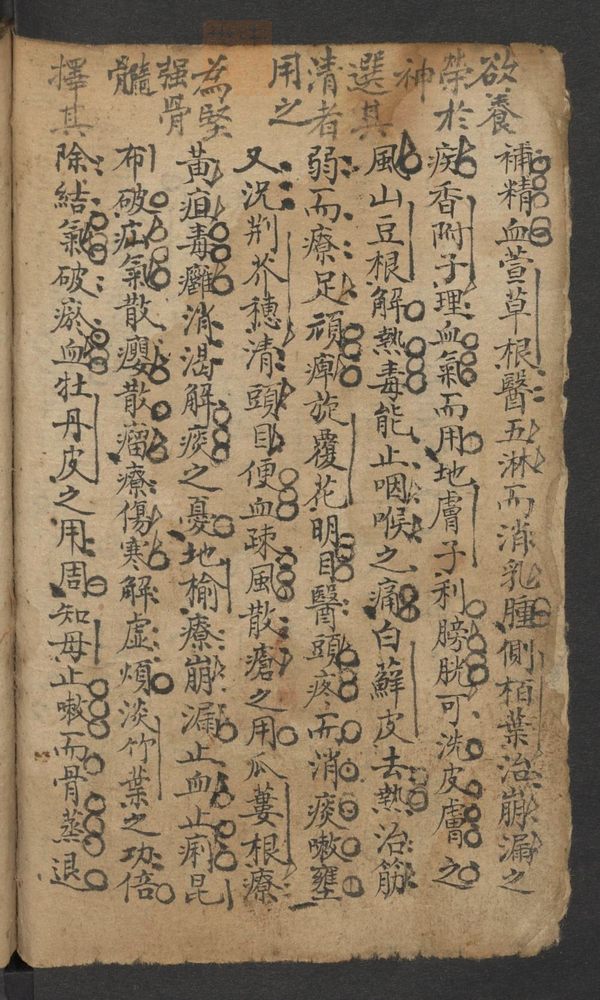 欲養
榮於
神
選其
清者
用之
為堅
强骨
髓
擇其
補精血萱草根醫五淋而消乳腫側栢葉治崩漏之
疾香附子理血氣而用地膚子利膀胱可洗皮膚之
風山豆根解熱毒能止咽喉之痛白蘚皮去熱治筋
弱而療足頑痺旋覆花明目醫頭疼而消痰嗽壅
又況荆芥穗清頭目便血疎風散瘡之用瓜蔞根療
黃疸毒癰消渴解痰之憂地榆療崩漏止血止痢昆
布破疝氣散癭散瘤療傷寒解虛煩淡竹葉之功倍
除結氣破瘀血牡丹皮之用周知母止嗽而骨蒸退